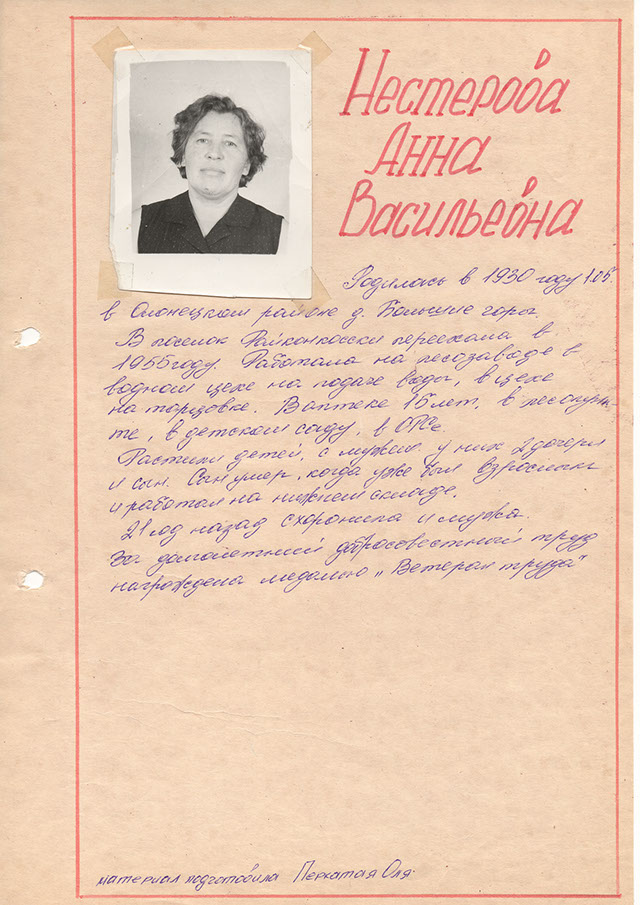 Нестерова
Анна
Васильевна
Родилась в 1930 году 1.05.
в Олонецком районе д. Большие горы.
В поселок Райконкоски переехала в
1955 году. Работала на лесозаводе в
водном цехе на подаче воды, в цехе
на торцовке. В аптеке 15 лет, в лесопунк-
те, в детском саду, в ОРСе.
Растили детей, с мужем у них 2 дочери
и сын. Сын умер, когда уже был взрослым
и работал на нижнем складе.
21 год назад схоронила и мужа.
За долголетний добросовестный труд
награждена медалью „Ветеран труда"
материал подготовила Перхатая Оля.